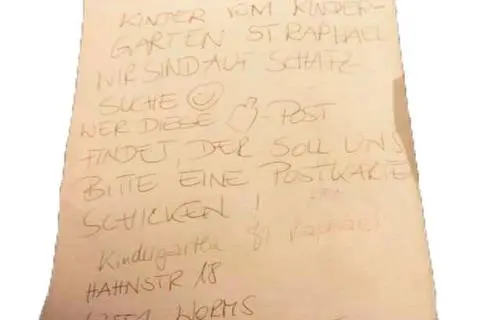 KINDER VOM KINDER-
GARTEN ST RAPHAEL
WIR SIND AUF SCHATZ
SUCHE
WER DIESE -POST
FINDET, DER SOLL UNS
BITTE EINE POSTKARTE
SCHICKEN !
Kindergarten St Raphael
HAHNSTR 18
WORMS